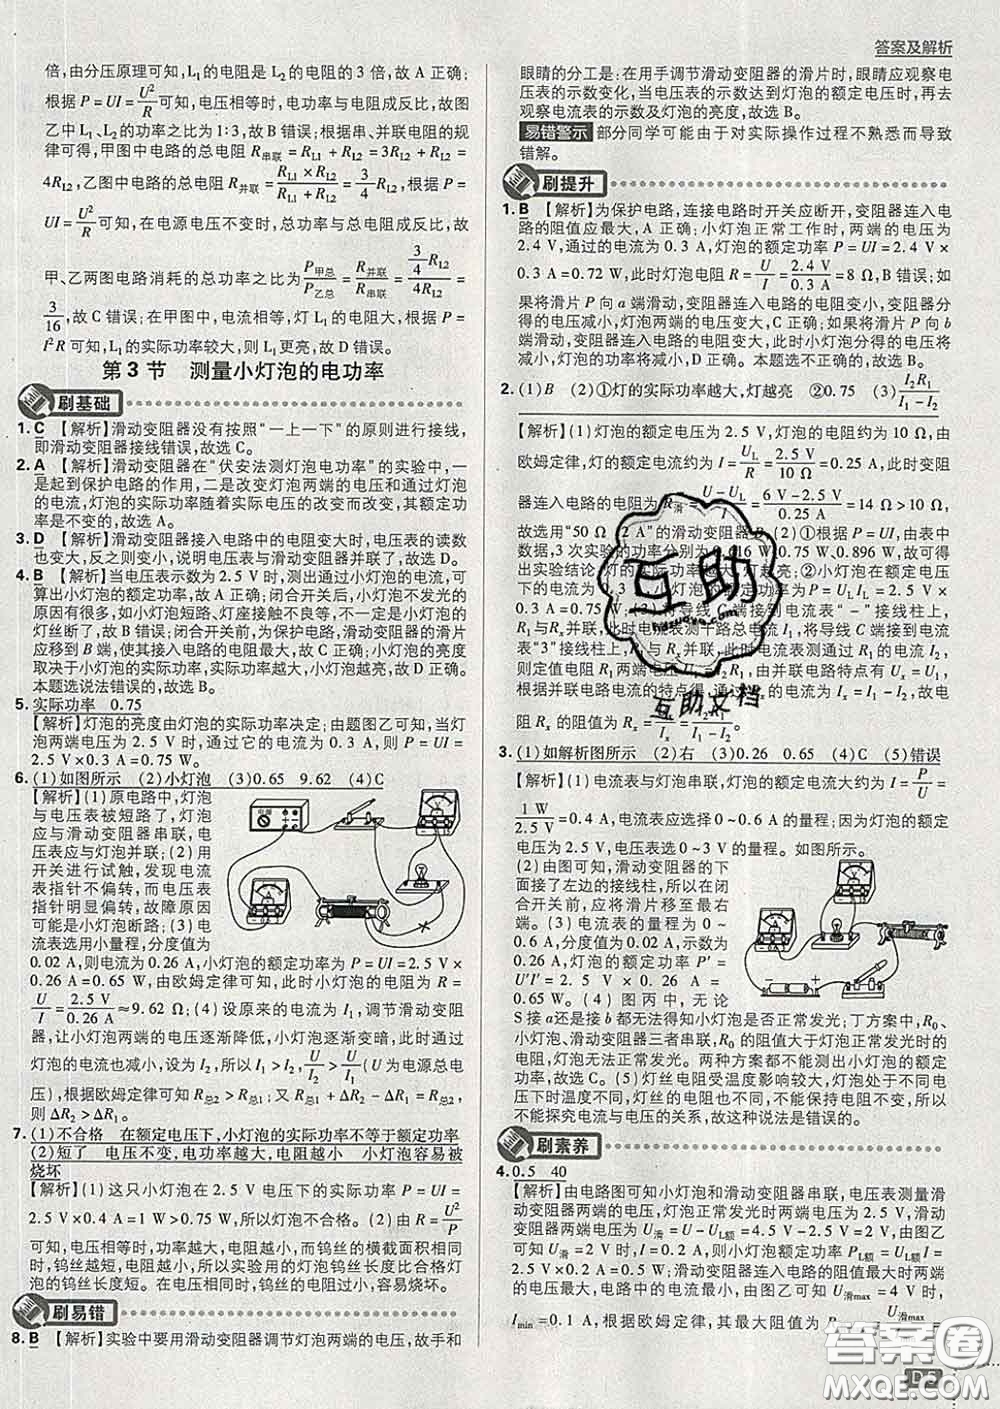 答案及解析
由分压原理可知，L₁的电阻是L₂的电阻的3倍，故A正确；
根据P=UI=U²/R可知，电压相等时，电功率与电阻成反比，故图
乙中L₁、L₂的功率之比为1∶3，故B错误；根据串、并联电阻的规
律可得，甲图中电路的总电阻R串联=R_L1+R_L2=3R_L2+R_L2=
4R_L2，乙图中电路的总电阻R并联=(R_L1×R_L2)/(R_L1+R_L2)=3/4 R_L2，根据P=
UI=U²/R可知，在电源电压不变时，总功率与总电阻成反比，故
甲、乙两图电路消耗的总功率之比为P甲总/P乙总=R并联/R串联=(3/4 R_L2)/(4R_L2)=
3/16，故C错误；在甲图中，电流相等，灯L₁的电阻大，根据P=
I²R可知，L₁的实际功率较大，则L₁更亮，故D错误。
第3节 测量小灯泡的电功率
刷基础
1. C 【解析】滑动变阻器没有按照“一上一下”的原则进行接线，
即滑动变阻器接线错误，故选C。
2. A 【解析】滑动变阻器在“伏安法测灯泡电功率”的实验中，
一是起到保护电路的作用，二是改变灯泡两端的电压和通过灯泡
的电流，灯泡的实际功率随着实际电压的改变而改变，其额定功
率是不变的，故选A。
3. D 【解析】滑动变阻器接入电路中的电阻变大时，电压表的读数
也变大，反之则变小，说明电压表与滑动变阻器并联了，故选D。
4. B 【解析】当电压表示数为2.5 V时，测出通过小灯泡的电流，可
算出小灯泡的额定功率，故A正确；闭合开关后，小灯泡不发光的
原因有很多，如小灯泡短路、灯座接触不良等，不一定是小灯泡的
灯丝断了，故B错误；闭合开关前，为保护电路，滑动变阻器的滑片
应移到B端，使其接入电路的电阻最大，故C正确；小灯泡的亮度
取决于小灯泡的实际功率，实际功率越大，小灯泡越亮，故D正确。
本题选说法错误的，故选B。
5. 实际功率 0.75
【解析】灯泡的亮度由灯泡的实际功率决定；由题图乙可知，当灯
泡两端电压为2.5 V时，通过它的电流为0.3 A，则P=UI=
2.5 V×0.3 A=0.75 W。
6. (1)如图所示 (2)小灯泡 (3)0.65 9.62 (4)C
【解析】(1)原电路中，灯泡
与电压表被短路了，灯泡
应与滑动变阻器串联，电
压表应与灯泡并联；(2)用
开关进行试触，发现电流
表指针不偏转，而电压表
指针明显偏转，故障原因
可能是小灯泡断路；(3)电
流表选用小量程，分度值为
0.02 A，则电流为0.26 A，小灯泡的额定功率P=UI=2.5 V×
0.26 A=0.65 W，由欧姆定律可知，此时小灯泡的电阻为R=
U/I=2.5 V/0.26 A≈9.62 Ω；(4)设原来的电流为I₁，调节滑动变阻
器，让小灯泡两端的电压逐渐降低，小灯泡逐渐变暗，此时电路
的电流也减小，设为I₂，所以I₂<I₁，而电源电压U不变，则U/I₂>U/I₁，
根据欧姆定律可知R总2>R总1；又R总=R灯+R滑，
则ΔR₂>ΔR₁。故选C。
7. (1)不合格 在额定电压下，小灯泡的实际功率不等于额定功率
(2)短了 电压不变，电功率越大，电阻越小 小灯泡容易被
烧坏
【解析】(1)这只小灯泡在2.5 V电压下的实际功率P=UI=
2.5 V×0.4 A=1 W>0.75 W，所以灯泡不合格。(2)由R=U²/P
可知，电压相等时，功率越大，电阻越小；而钨丝的横截面积相同
时，钨丝越短，电阻越小，所以实验用的灯泡钨丝长度比合格灯
泡的钨丝长度短。在电压相同时，钨丝的电阻越小，容易烧坏。
刷易错
8. B 【解析】实验中要用滑动变阻器调节灯泡两端的电压，故手和
眼睛的分工是：在用手调节滑动变阻器的滑片时，眼睛应观察电
压表的示数变化，当电压表的示数达到灯泡的额定电压时，再去
观察电流表的示数及灯泡的亮度，故选B。
易错警示 部分同学可能由于对实际操作过程不熟悉而导致
错解。
刷提升
1. B 【解析】为保护电路，连接电路时开关应断开，变阻器连入电
路的阻值应最大，A正确；小灯泡正常工作时，两端的电压为
2.4 V，通过的电流为0.3 A，灯泡的额定功率P=UI=2.4 V
×0.3 A=0.72 W，此时灯泡电阻R=U/I=2.4 V/0.3 A=8 Ω，B错误；如
果将滑片P向a端滑动，变阻器连入电路的电阻变小，变阻器分
得的电压减小，灯泡两端的电压变大，C正确；如果将滑片P向b
端滑动，变阻器连入电路的电阻变大，电路中的电流变小，灯泡功率
减小，灯泡亮度变暗，D正确。本题选不正确的，故选B。
2. (1)B (2)①灯的实际功率越大，灯越亮 ②0.75 (3)I₂R₁/(I₁-I₂)
【解析】(1)灯泡的额定电压为2.5 V，灯泡的电阻约为10 Ω，由
欧姆定律，灯的额定电流约为I=U_L/R=2.5 V/10 Ω=0.25 A，此时变阻
器连入电路的电阻为R滑=(U-U_L)/I=(6 V-2.5 V)/0.25 A=14 Ω>10 Ω，
故选用“50 Ω 2 A”的滑动变阻器B。(2)①由P=UI，由表中
数据，3次实验的功率分别为0.016 W、0.75 W、0.896 W，故可得
出实验结论：灯的实际功率越大，灯越亮；②小灯泡在额定电压
下的功率为0.75 W。
R₁与Rₓ并联，此时电流表测干路总电流I₁，将导线C端接到电流
表“3”接线柱上，R₁与Rₓ并联，此时电流表测通过R₁的电流I₂，
则定值电阻R₁两端电压U₁=I₂R₁，由并联电路特点有Uₓ=U₁，
根据并联电路电流的特点得，通过Rₓ的电流为Iₓ=I₁-I₂，故电
阻Rₓ的阻值为Rₓ=Uₓ/Iₓ=I₂R₁/(I₁-I₂)。
3. (1)如解析图所示 (2)右 (3)0.26 0.65 (4)C (5)错误
【解析】(1)电流表与灯泡串联，灯泡的额定电流大约为I=P/U=
1 W/2.5 V=0.4 A，电流表应选择0~0.6 A的量程；因为灯泡的额定
电压为2.5 V，电压表选0~3 V的量程。如图所示。
(2)由图可知，滑动变阻器的下
面接了左边的接线柱，所以在闭
合开关前，应将滑片移至最右
端。(3)电流表的量程为0~
0.6 A，分度值为0.02 A，示数为
0.26 A；小灯泡的额定功率P′=
U′I′=2.5 V×0.26 A=
0.65 W。(4)图丙中，无论
S接a还是接b都无法得知小灯泡是否正常发光；丁方案中，R₀、
小灯泡、滑动变阻器三者串联，R₀的阻值大于灯泡正常发光时的
电阻，灯泡无法正常发光。两种方案都不能测出小灯泡的额定
功率，故选C。(5)灯丝电阻受温度影响较大，灯泡处于不同电
压下时温度不同，因此不同电压下小灯泡灯丝的电阻不同，所以
不能探究电流与电压的关系，故这种说法是错误的。
刷素养
4. 0.5 40
【解析】由电路图可知小灯泡和滑动变阻器串联，电压表测量滑
动变阻器两端的电压，灯泡正常发光时两端电压为2.5 V，滑动
变阻器两端电压为U滑=U-U_L额=4.5 V-2.5 V=2 V，由图乙
可知U滑=2 V时，I=0.2 A，则小灯泡额定功率P_L额=U_L额I=
2.5 V×0.2 A=0.5 W；当滑动变阻器接入电路的阻值最大时，
电压表示数最大，电路中的电流最小，由图乙知U滑max=4 V时，
Imin=0.1 A，根据欧姆定律得，其最大电阻值为Rmax=U滑max
互助
huzuoyo.com
互助文档
答案圈
MXQE.COM